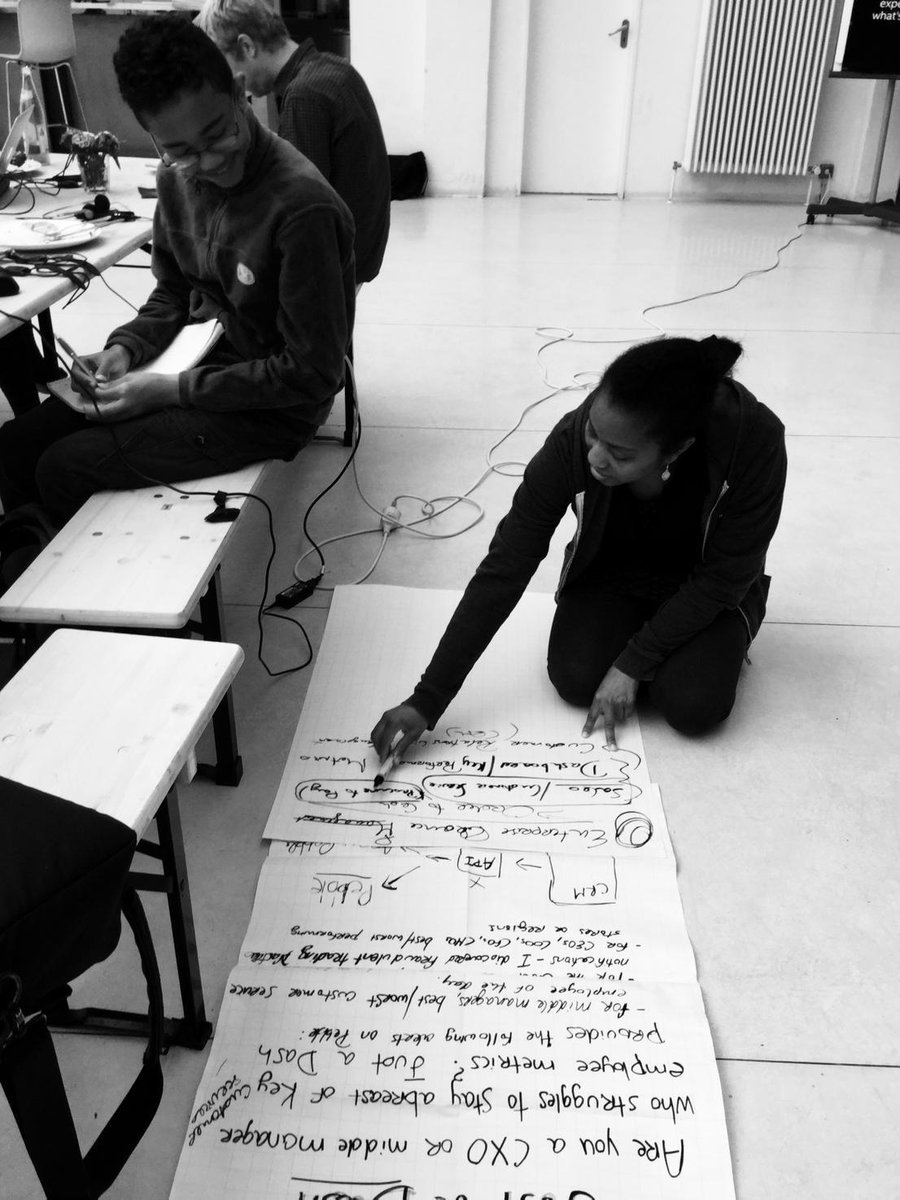 what's
Just a Dash
Are you a CXO or middle manager
who struggles to stay abreast of key customer
service
employee metrics? Just a Dash
provides the following alerts on
- for middle managers, best/worst customer service
employee of the day
- for
notifications - I discovered fraudulent trading
- for CEOs, COOs, CFO, CMO best/worst performing
stores or regions
CRM → API → 
X
Pebble
Enterprise
Order to Cash
Sales / Customer Service (Procure to Pay)
Dashboard / Key Performance Metrics
Customer Relations Management
(CRM)